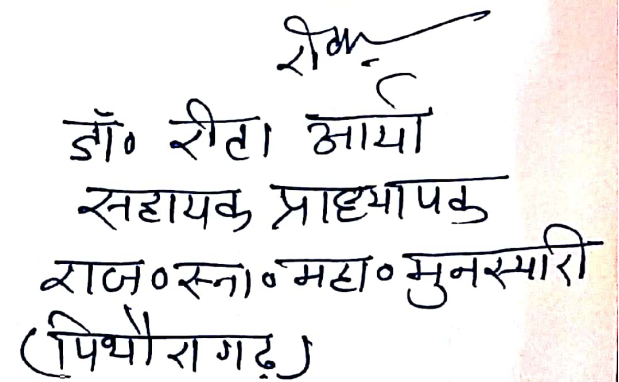 डॉ० रीटा आर्या
सहायक प्राध्यापक
राज०स्ना०महा०मुनस्यारी
(पिथौरागढ़)